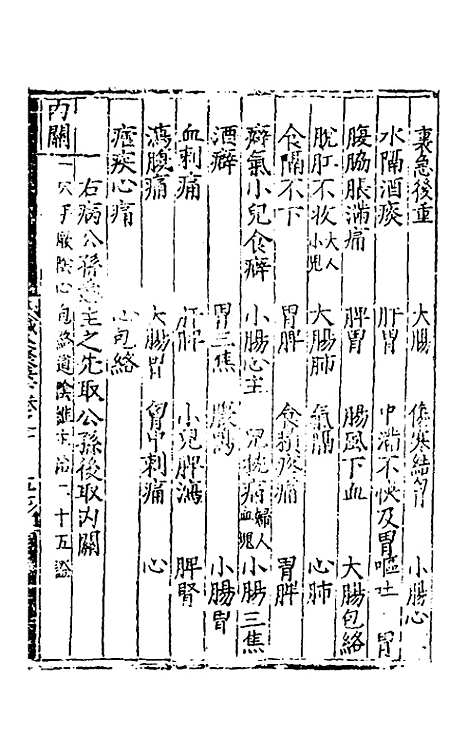 裏急後重 大腸 傷寒結胸 小腸心
水隔酒痰 肝胃 中滿不快反胃嘔吐 胃
腹脇脹滿痛 脾胃 腸風下血 大腸包絡
脫肛不收大人小兒 大腸肺 氣隔 心肺
食隔不下 胃脾 食積疼痛 胃脾
癖氣小兒食癖 小腸心主 兒枕痛婦人血塊 小腸三焦
酒癖 胃三焦 腹鳴 小腸胃
血刺痛 肝脾 小兒脾瀉 脾腎
瀉腹痛 大腸胃 胷中刺痛 心
瘧疾心痛 心包絡
右病公孫悉主之先取公孫後取内關
内關 穴手厥隂心包絡道隂維主治二十五證